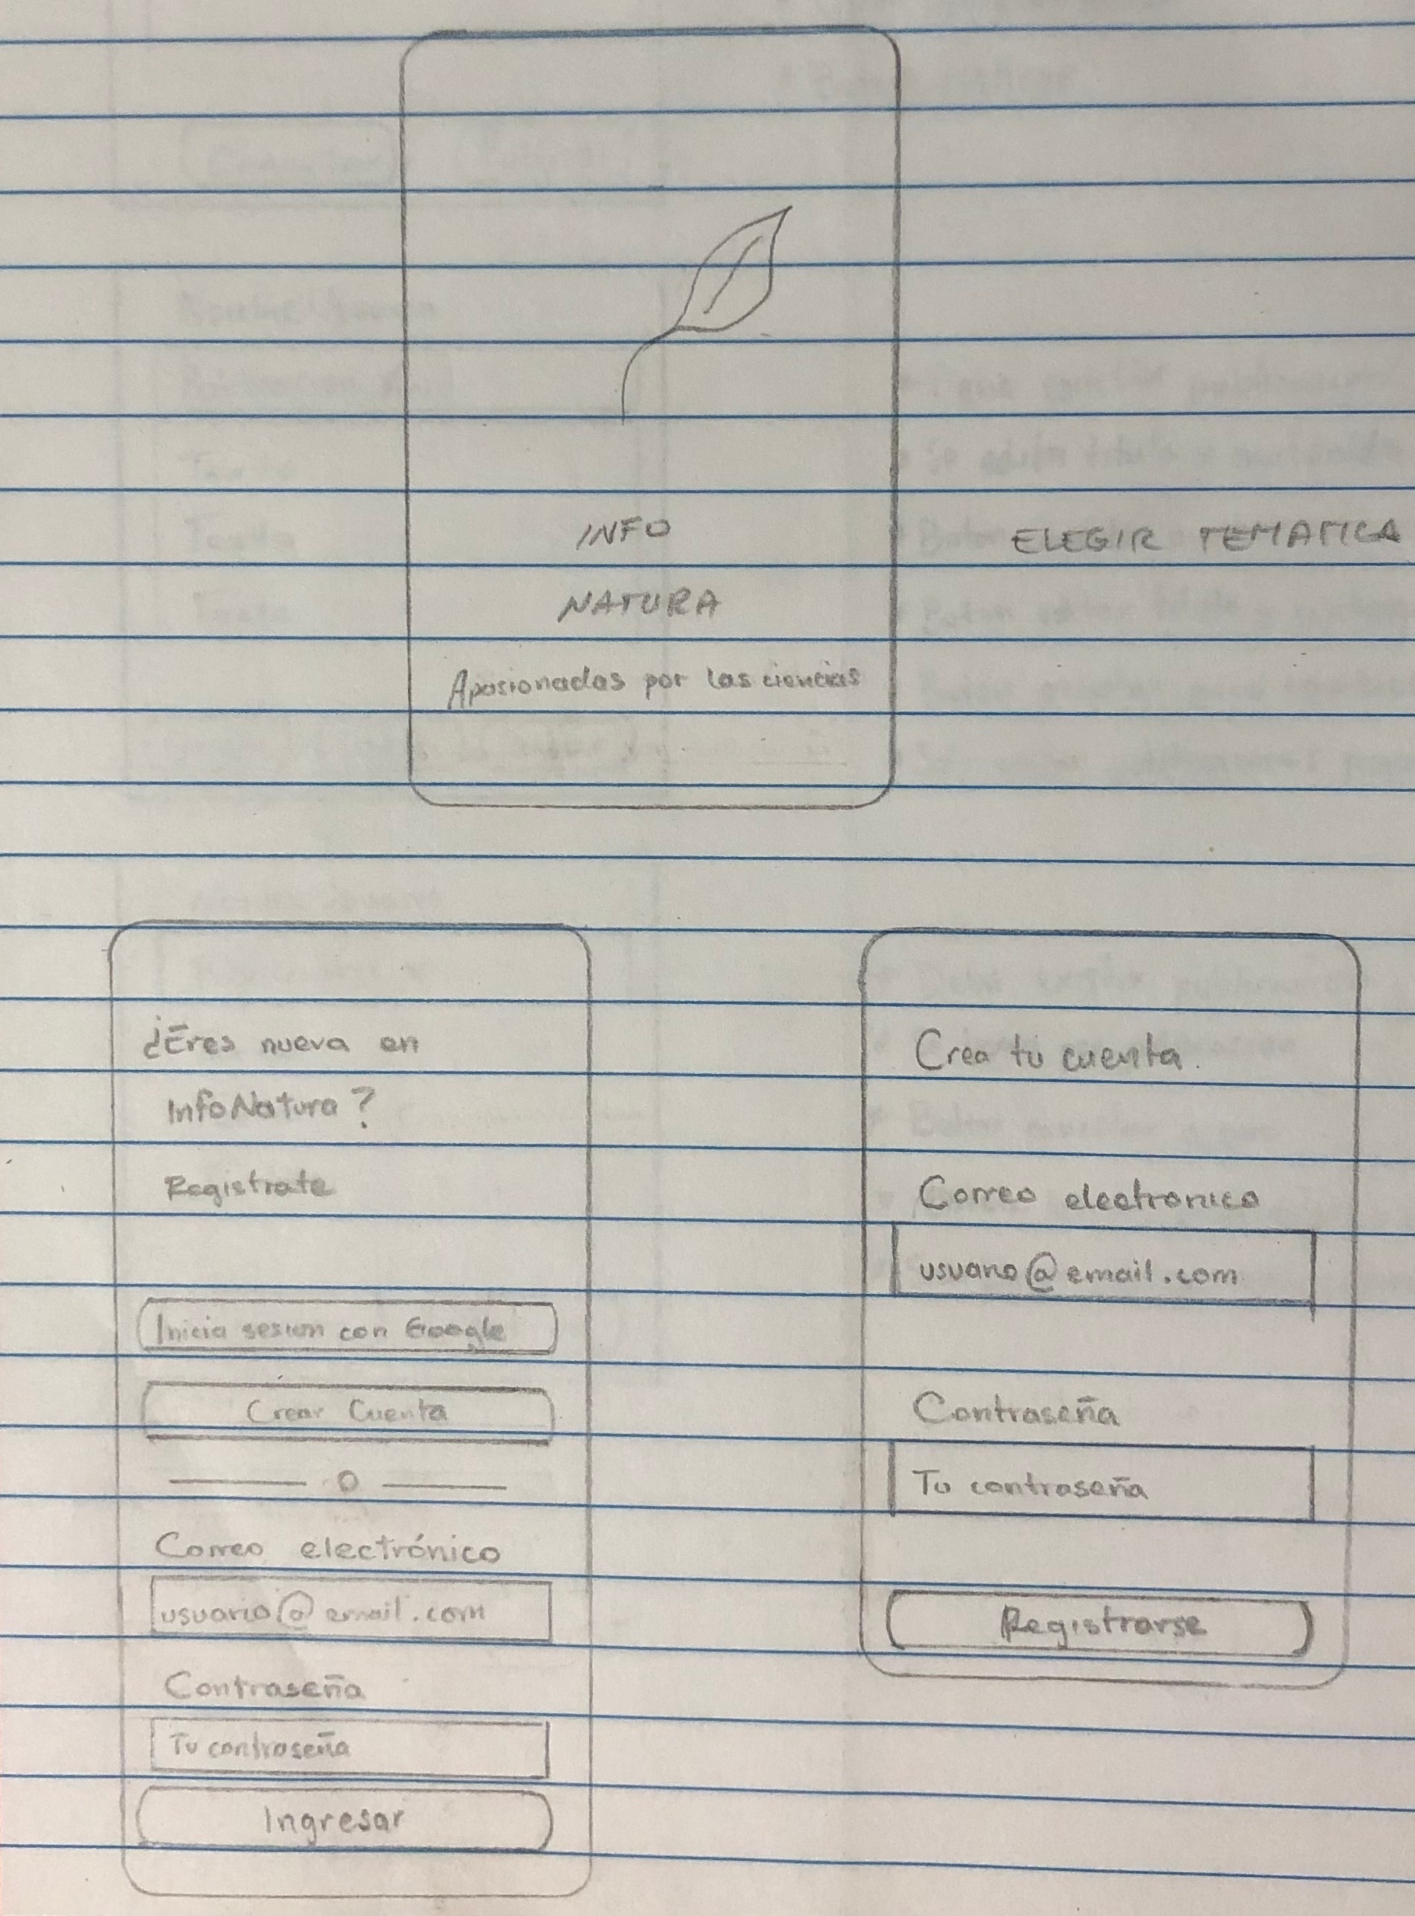 INFO
NATURA
Apasionadas por las ciencias
ELEGIR TEMATICA
¿Eres nueva en
InfoNatura?
Registrate
Inicia sesion con Google
Crear Cuenta
O
Correo electrónico
usuario@email.com
Contraseña
Tu contraseña
Ingresar
Crea tu cuenta.
Correo electronico
usuario@email.com
Contraseña
Tu contraseña
Registrarse